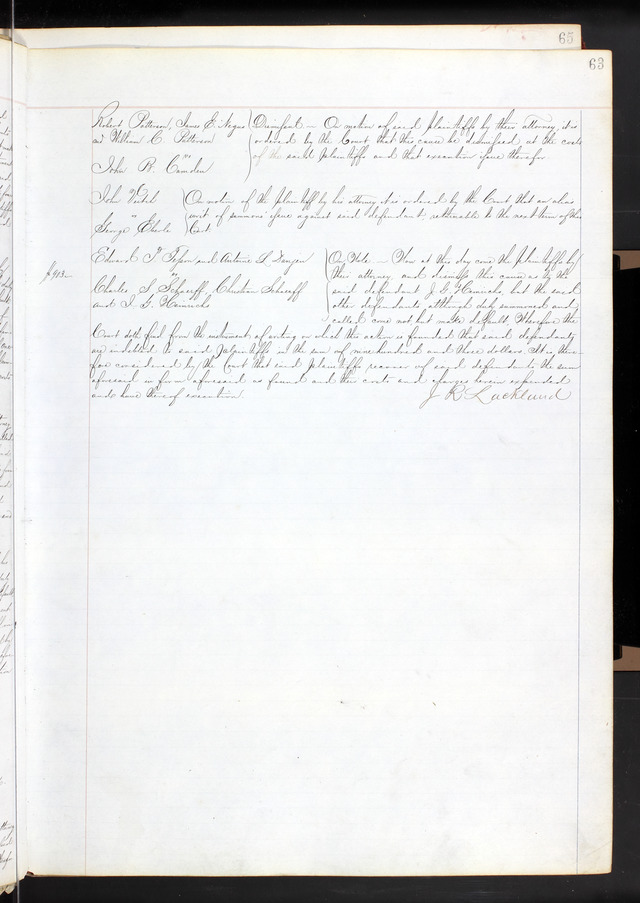 65
63
Robert Patterson, James E. Negus
and William C. Patterson
vs
John R. Camden
Dismissed — On motion of said plaintiffs by their attorney, it is
ordered by the Court that this cause be dismissed at the costs
of the said plaintiffs and that execution issue therefor.
John
vs
George
On motion of the plaintiff by his attorney it is ordered by the Court that an alias
writ of summons issue against said defendant, returnable to the next term of this
Court
Edward and Antoine L.
vs
Charles S. Scheriff, Christian Scheriff
and J. G. Heinrichs
On Note. — Now at this day come the plaintiffs by
their attorney, and dismiss this cause as to the
said defendant J. G. Heinrichs, but the said
other defendants although duly summoned and
called come not but make default, Therefore the
$903—
Court doth find from the instrument of writing on which this action is founded that said defendants
are indebted to said plaintiffs in the sum of nine hundred and three dollars. It is there-
fore considered by the Court that said plaintiffs recover of said defendants the sum
aforesaid in form aforesaid as found and their costs and charges herein expended
and have thereof execution.
J R Lackland